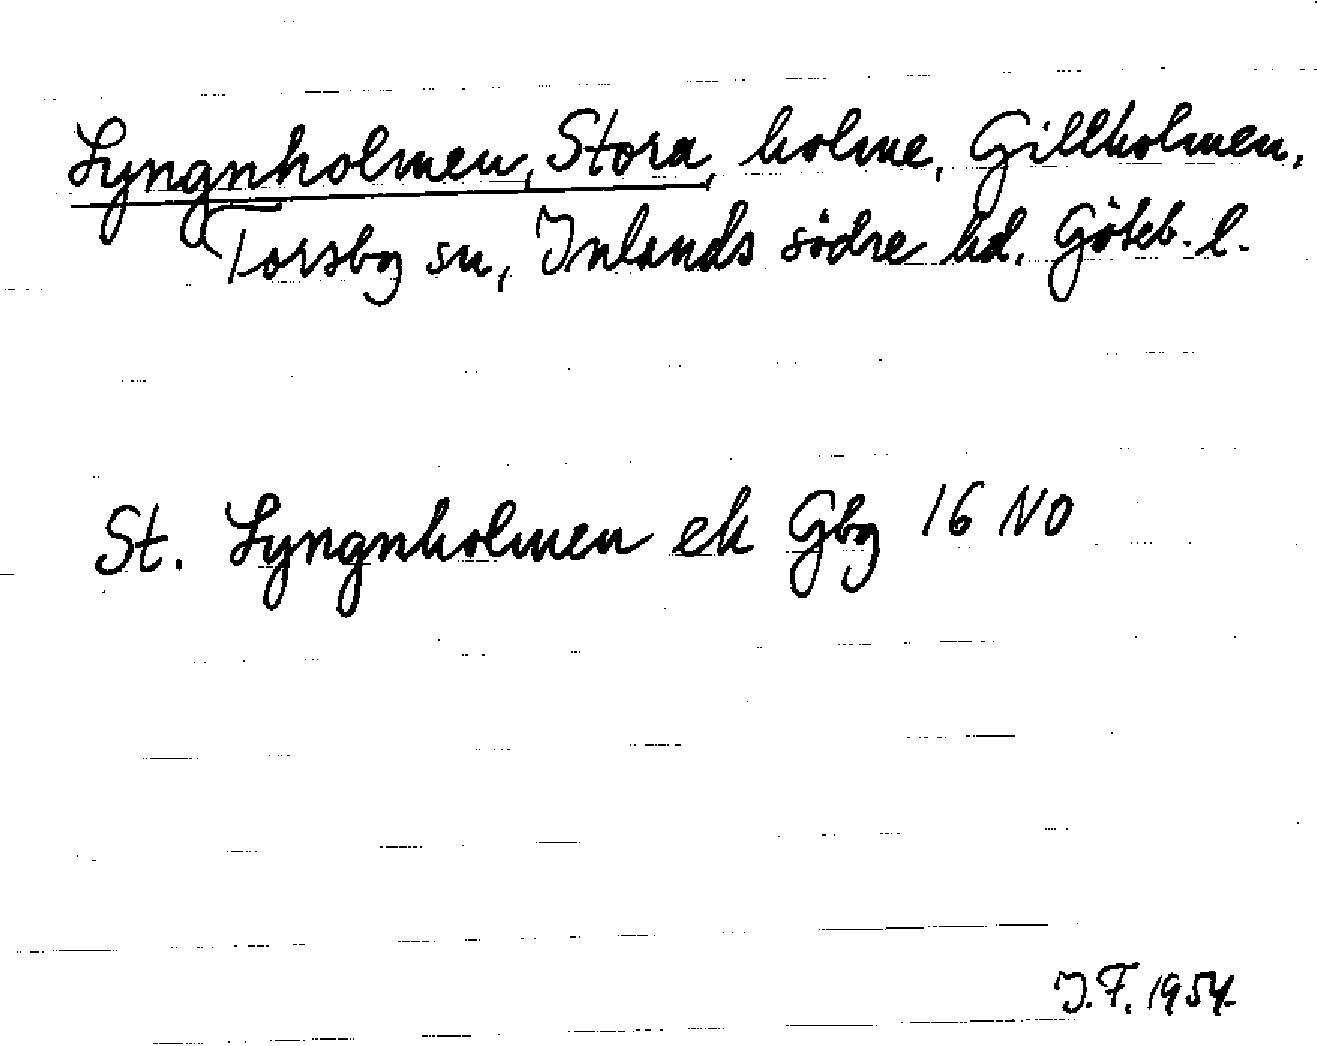 Lyngnholmen, Stora, holme, Gillholmen,
Torsby sn, Inlands södre hd. Göteb. l.
St. Lyngnholmen ek Gbg 16 NO
J.F. 1954.